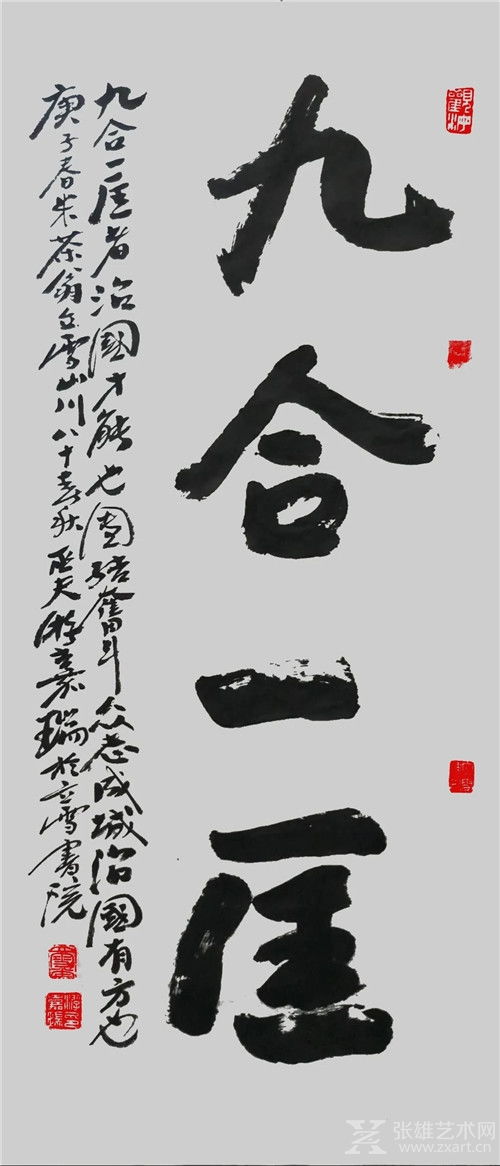 九合一匡
九合一匡者治國才能也團结奮斗众志成城治國有方也
庚子春朱茶翁立雪山川八十春秋匹夫游嘉瑞於立雪書院
张雄艺术网
www.zxart.cn